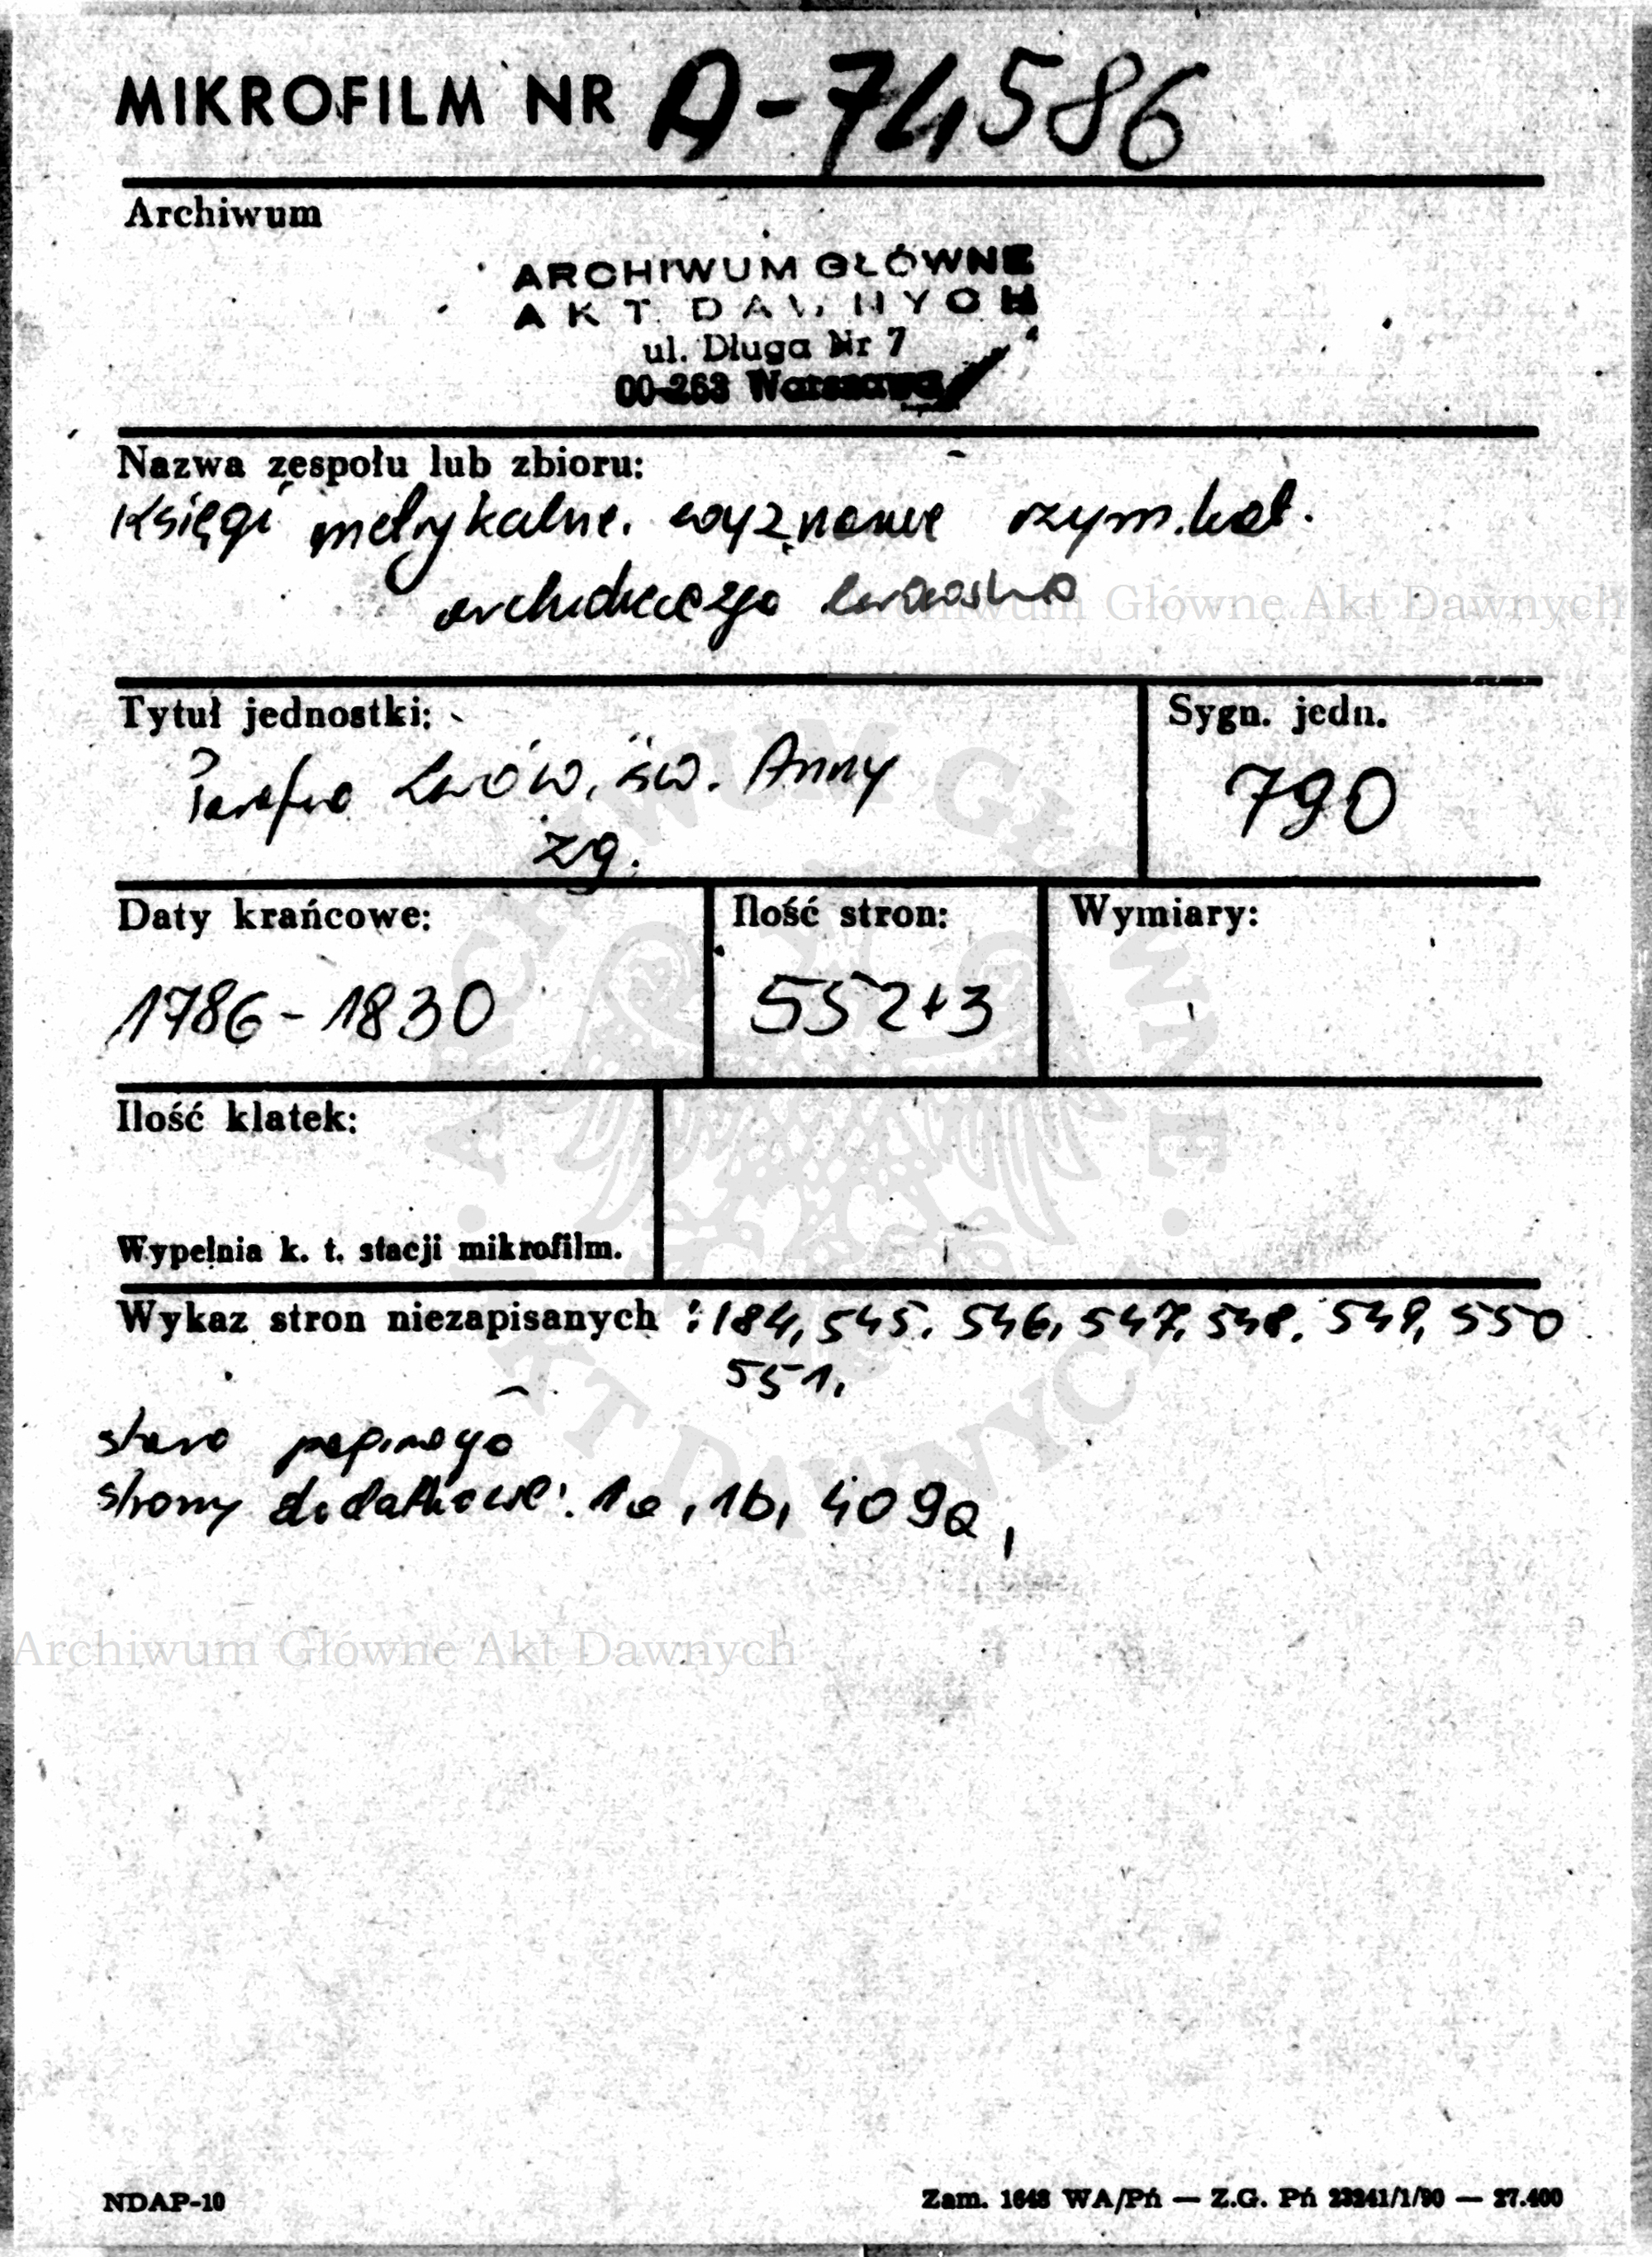 MIKROFILM NR A-74586
Archiwum
ARCHIWUM GŁÓWNE
AKT DAWNYCH
ul. Długa Nr 7
00-263 Warszawa
Nazwa zespołu lub zbioru:
Księgi metrykalne. wyznanie rzym.kat.
archidiecezja lwowska
Archiwum Główne Akt Dawnych
Tytuł jednostki:
Parafia Lwów, św. Anny
zg.
Sygn. jedn.
790
Daty krańcowe:
1786-1830
Ilość stron:
552+3
Wymiary:
Ilość klatek:
Wypełnia k. t. stacji mikrofilm.
Wykaz stron niezapisanych : 184, 545. 546, 547, 548. 549, 550
551,
stara paginacja
strony dodatkowe: 1a, 1b, 409a,
Archiwum Główne Akt Dawnych
ARCHIWUM GŁÓWNE · AKT DAWNYCH ·
NDAP-10
Zam. 1648 WA/Pń — Z.G. Pń 23241/1/90 — 27.400